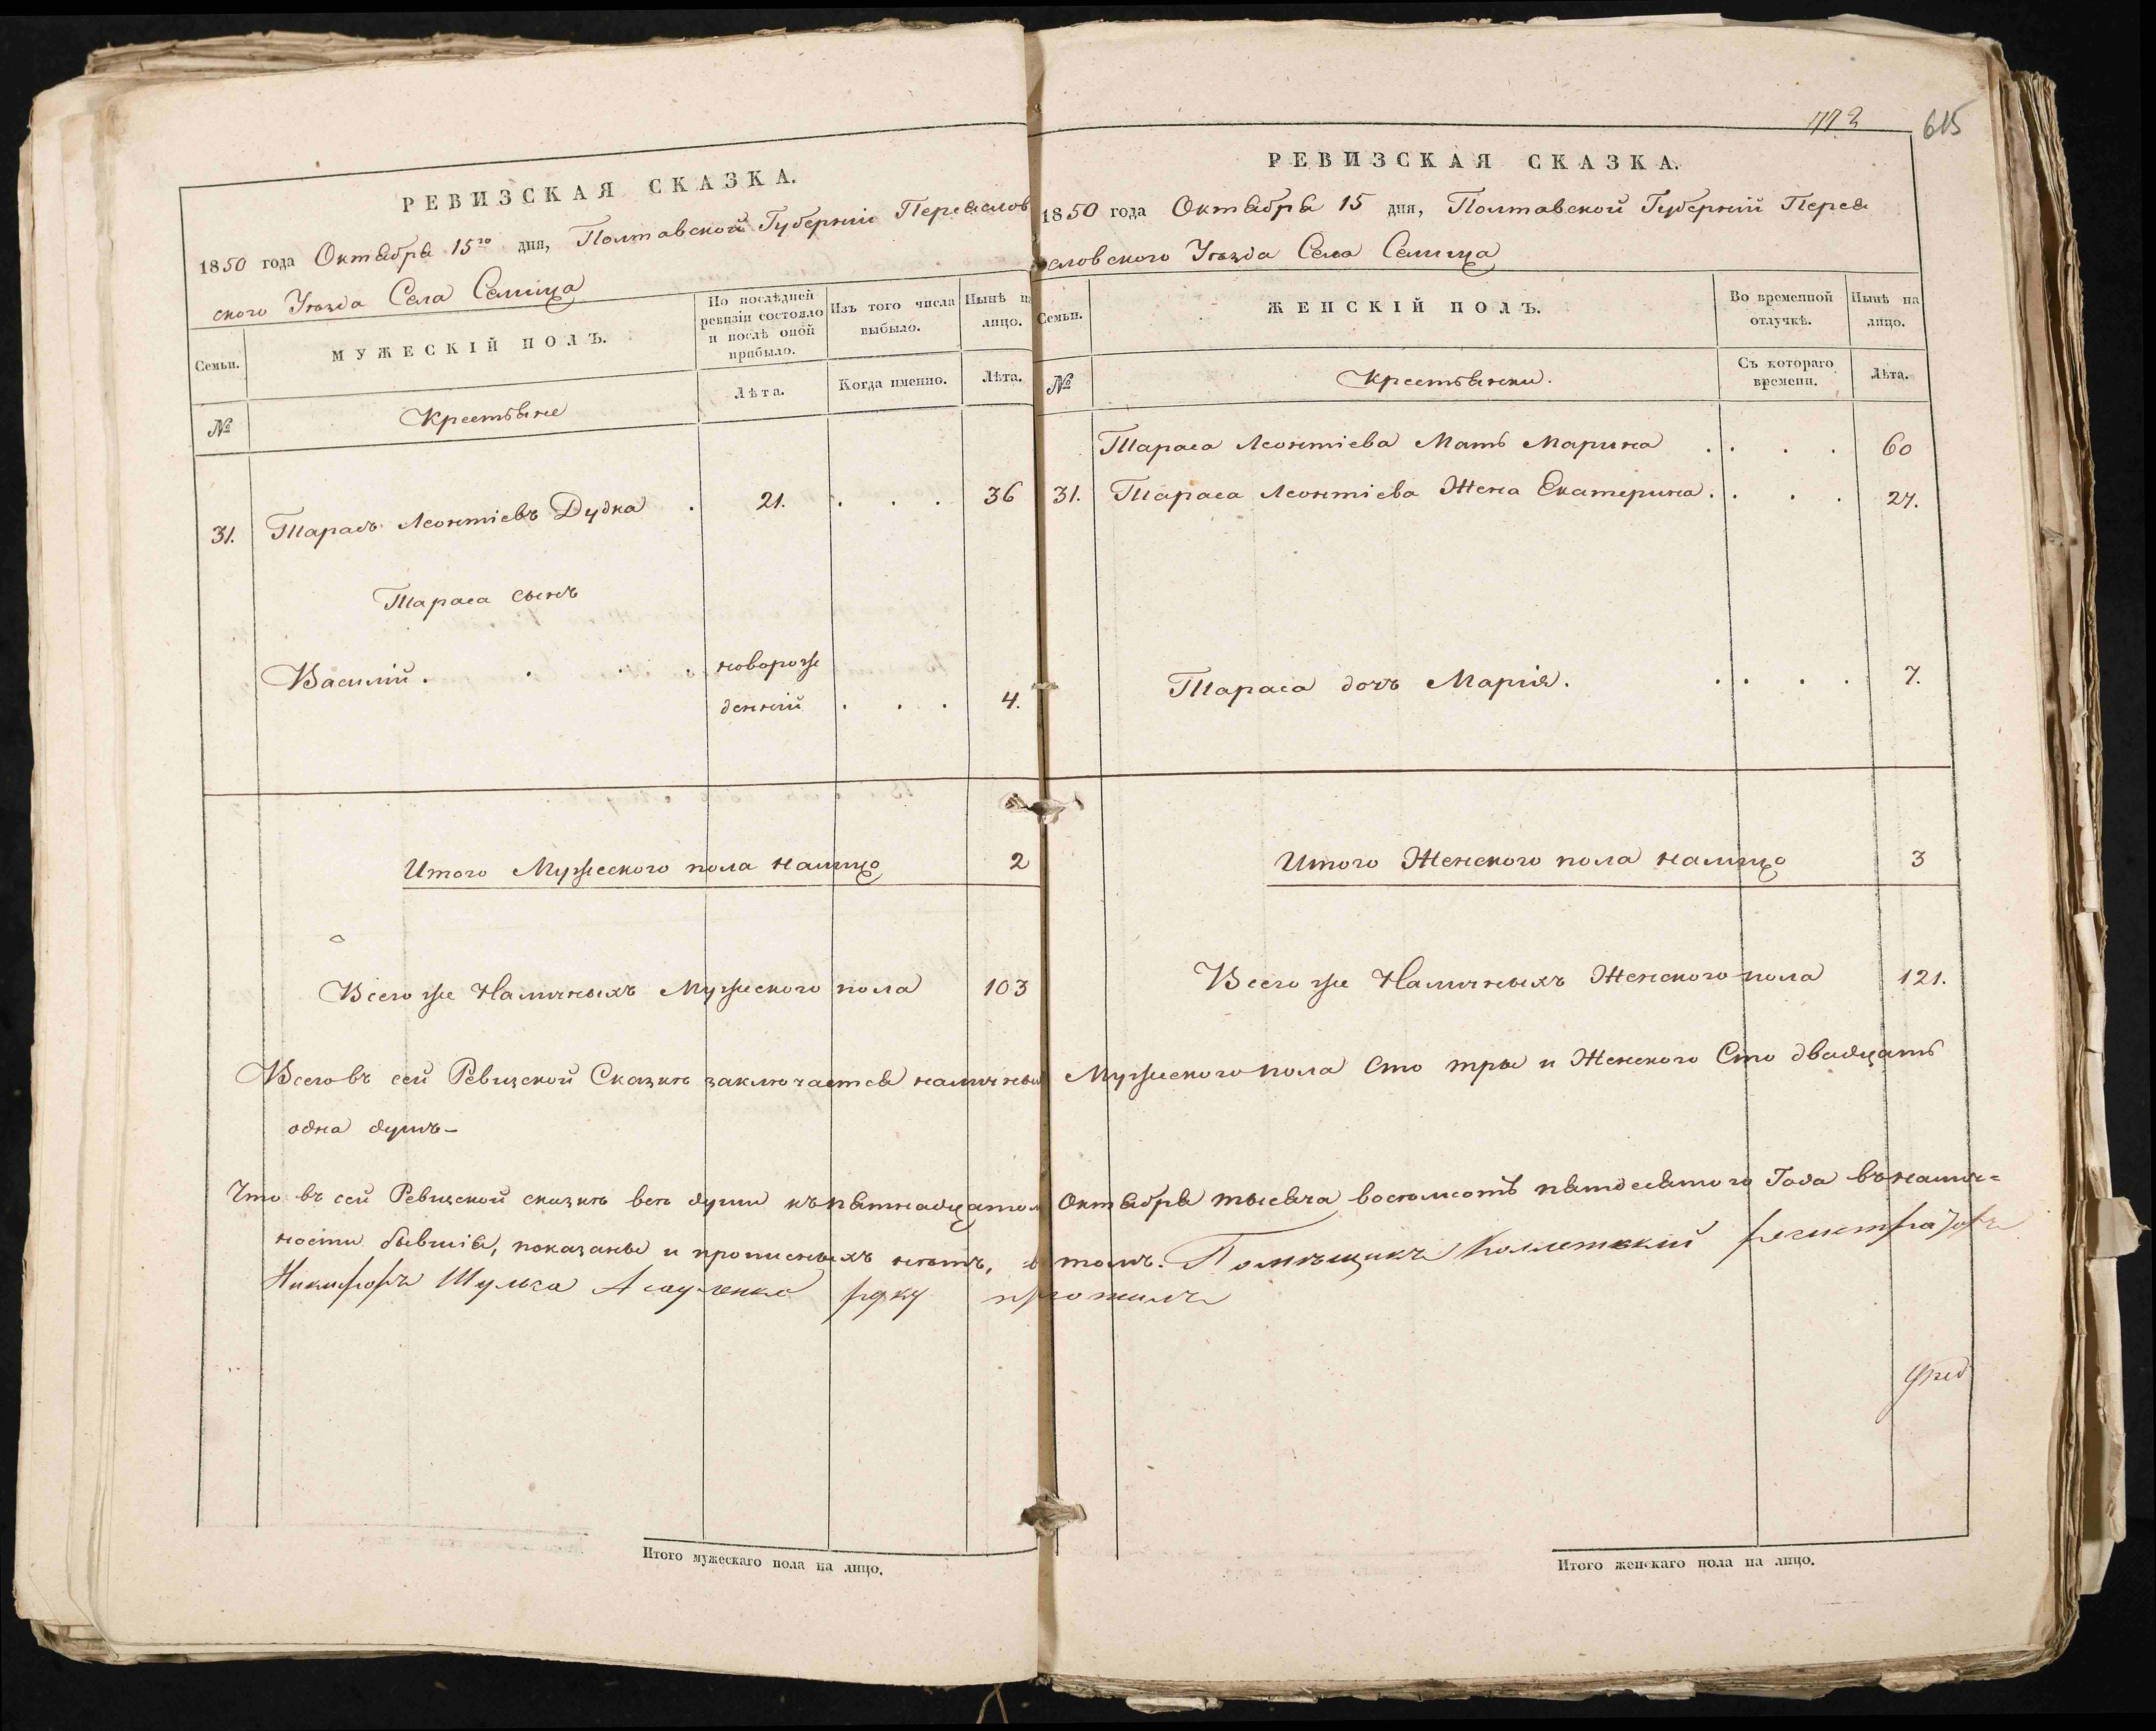 РЕВИЗСКАЯ СКАЗКА.
1850 года Октября 15го дня, Полтавской Губерніи Переяслов
ского Уѣзда Села Селища
Семьи.
МУЖЕСКІЙ ПОЛЪ.
По послѣдней ревизіи состояло и послѣ оной прибыло.
Изъ того числа выбыло.
Нынѣ на лицо.
№
Крестьяне
Лѣта.
Когда именно.
Лѣта.
31. Тарасъ Леонтіевъ Дудка . 21. . . . 36
Тараса сынъ
Василій . . . . новорож
денній . . . 4.
Итого Мужеского пола налицо 2
Всего же Наличныхъ Мужеского пола 103
615
РЕВИЗСКАЯ СКАЗКА.
1850 года Октября 15 дня, Полтавской Губерніи Перея
словского Уѣзда Села Селища
Семьи.
ЖЕНСКІЙ ПОЛЪ.
Во временной отлучкѣ.
Нынѣ на лицо.
№
Крестьянки.
Съ котораго времени.
Лѣта.
Тараса Леонтіева Мать Марина . . . . 60
31. Тараса Леонтіева Жена Екатерина . . . . 27.
Тараса дочъ Марія. . . . . 7.
Итого Женского пола налицо 3
Всего же Наличныхъ Женского пола 121.
Всего въ сей Ревизской Сказкѣ заключается наличныхъ Мужеского пола Сто тры и Женского Сто двадцать
одна душъ-
Что въ сей Ревизской сказкѣ всѣ души къ пятнадцатом Октября тысяча восемсотъ пятдесятого Года въ налич=
ности бывшія, показаны и прописныхъ нѣтъ, в томъ. Помѣщикъ Коллежскій регистраторъ
Никифоръ Шульга Асауленко руку приложилъ
Итого мужескаго пола на лицо.
Итого женскаго пола на лицо.